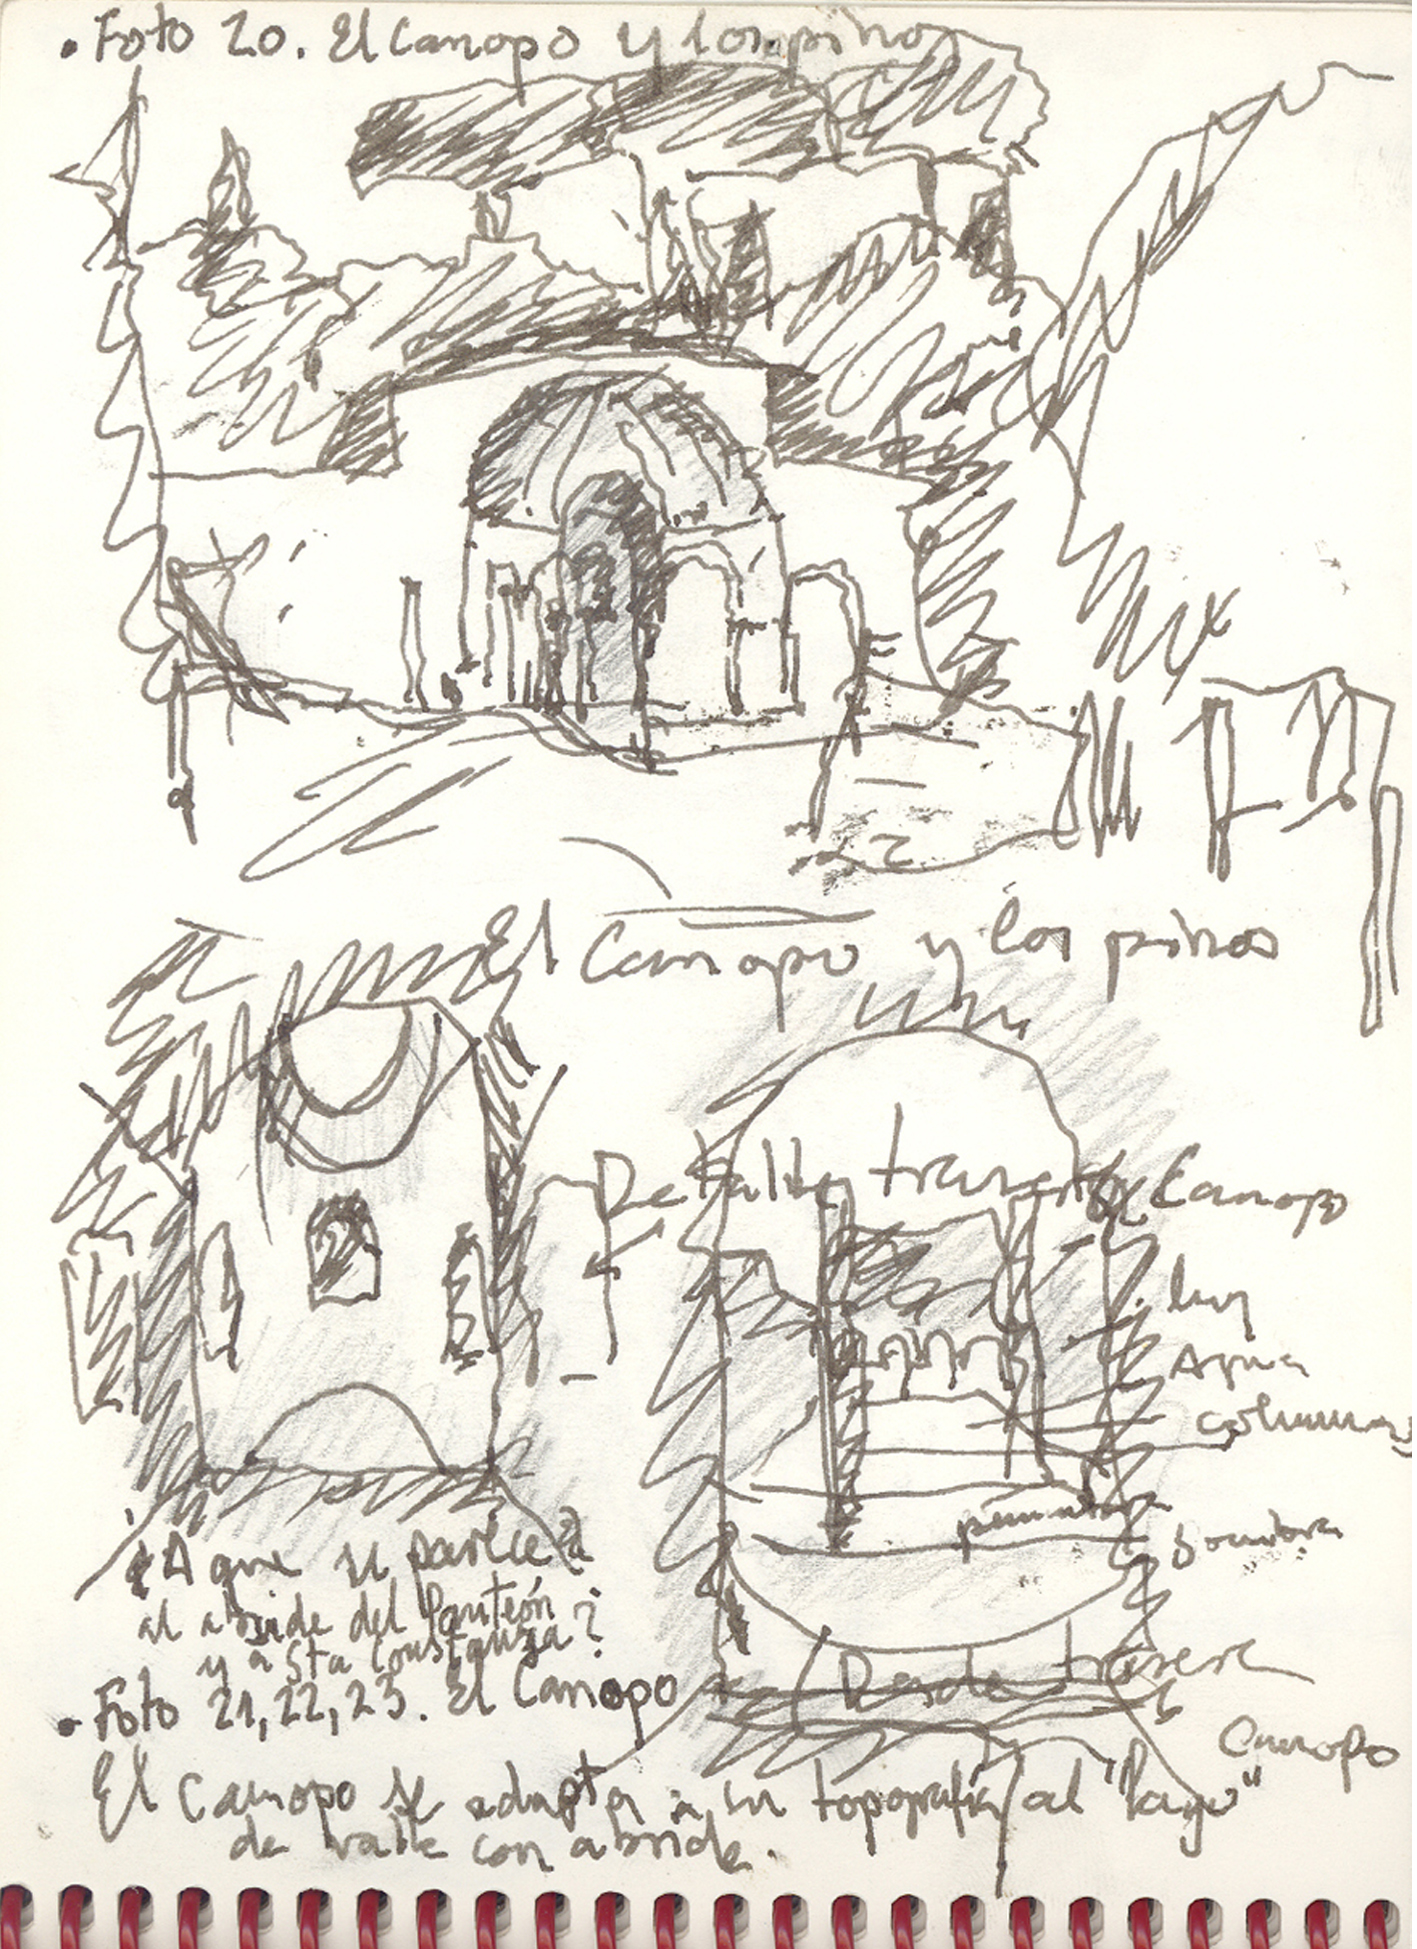 • Foto 20. El Canopo y los pinos
El Canopo y los pinos
Detalle trasera Canopo
luz
Agua
columnas
penumbra
Sombra
¿A que se parece?
al abside del Panteón
y a Sta Constanza?
• Foto 21, 22, 23. El Canopo
Desde trasera
Canopo
El Canopo se adapta a su topografía al "lago"
de valle con abside.